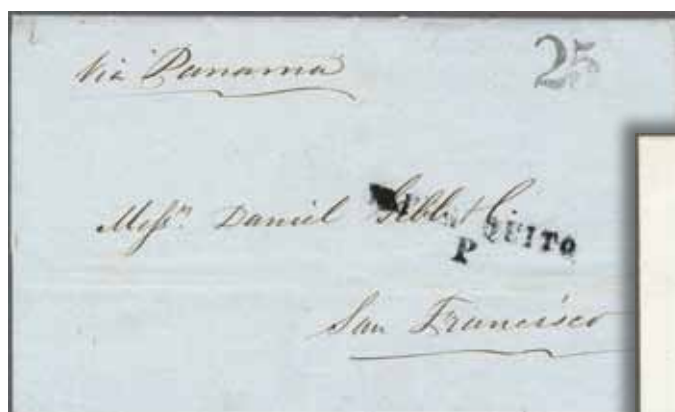 Via Panama
25
Messrs. Daniel Gibb & Co.
QUITO
P
San Francisco